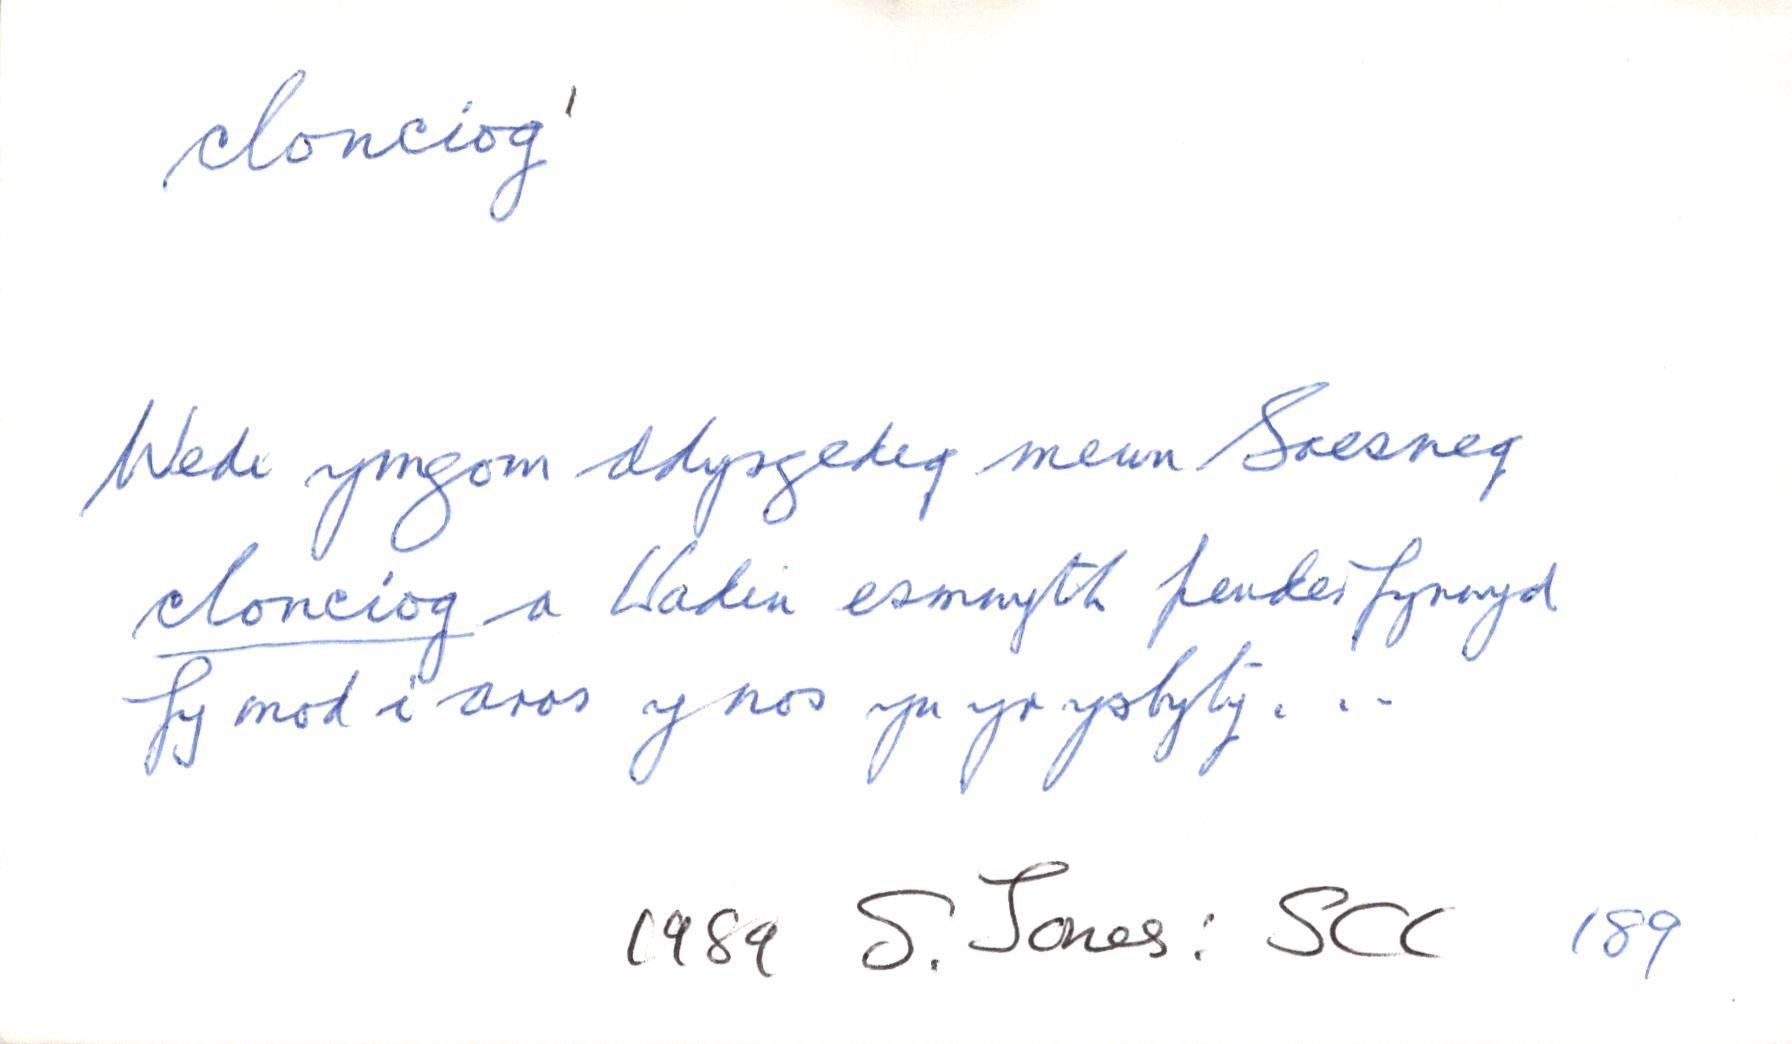 clonciog¹
Wedi ymgom ddysgedig mewn Saesneg
clonciog a Lladin esmwyth penderfynwyd
fy mod i aros y nos yn yr ysbyty. ..
1989 S. Jones: SCC 189